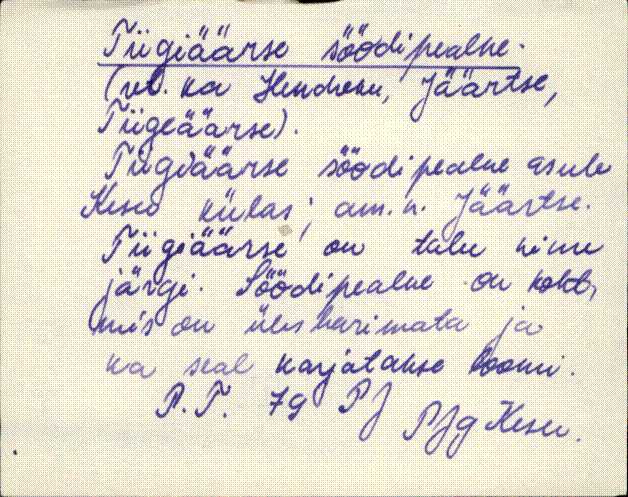 Tiigiäärse söödipealne.
(vt. ka Hendreku, Jäärtse,
Tiigeäärse).
Tiigiäärse söödipealne asub
Kesu külas; am. n. Jäärtse.
Tiigiäärse on talu nimi
järgi. Söödipealne on koht,
mis on üles harimata ja
ka seal karjatakse loomi.
P. T. 79 PJ
PJg Kesu.